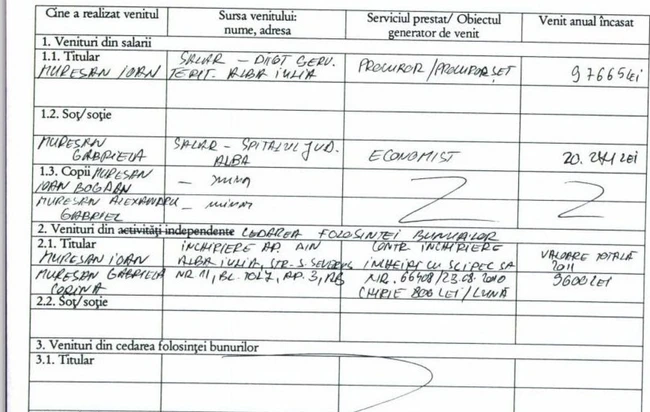 Cine a realizat venitul
Sursa venitului:
nume, adresa
Serviciul prestat/ Obiectul
generator de venit
Venit anual încasat
1. Venituri din salarii
1.1. Titular
MUREȘAN IOAN
SALAR – SERV.
TERIT. ALBA IULIA
PROCUROR / PROCUROR ȘEF
97665 LEI
1.2. Soț/soție
MUREȘAN
GABRIELA
SALAR – SPITALUL JUD.
ALBA
ECONOMIST
LEI
1.3. Copii MUREȘAN
IOAN BOGDAN
MUREȘAN ALEXANDRU
GABRIEL
2. Venituri din activități independente CEDAREA FOLOSINȚEI BUNURILOR
2.1. Titular
MUREȘAN IOAN
MUREȘAN GABRIELA
CORINA
ÎNCHIRIERE AP. DIN
ALBA IULIA, STR. S.
NR 11, BL. AP. 3,
CONTR ÎNCHIRIERE
ÎNCHEIAT CU SCIPEC SA
NR. 66408/23.08.2010
CHIRIE 800 LEI / LUNĂ
VALOARE TOTALĂ
2011
9600 LEI
2.2. Soț/soție
3. Venituri din cedarea folosinței bunurilor
3.1. Titular